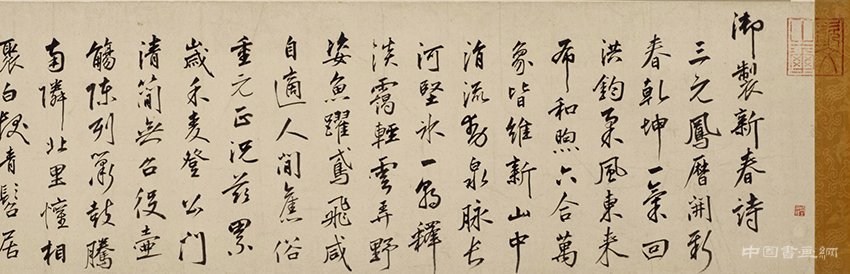 御製新春詩
三元鳳曆開新
春乾坤一氣回
洪鈞柔風東來
布和煦六合萬
象皆維新山中
涓流動泉脉長
河堅冰一朝釋
淡靄輕雲弄野
姿魚躍鳶飛咸
自適人間舊俗
重元正況茲累
歲禾麥登公門
清簡無召役壺
觴陳列簫鼓騰
南隣北里懽相
聚白髮青髫居
中国書画網